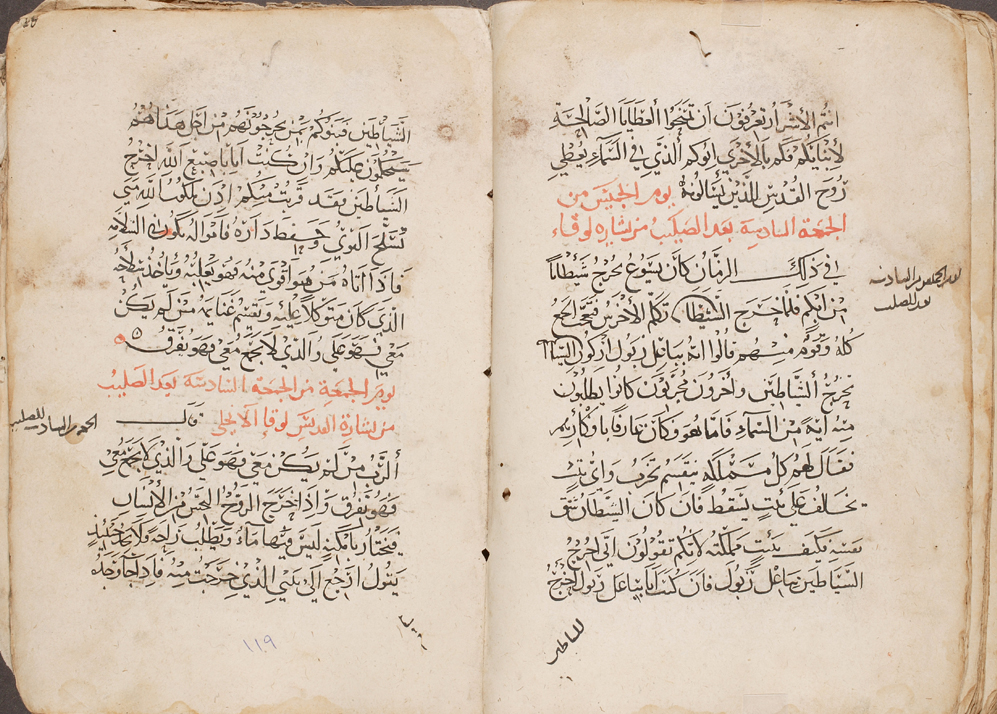 انتم الأشرار تعرفون ان تمنحوا العطايا الصالحة
لابنائكم فكم بالأحرى ابوكم الذي في السماء يعطي
روح القدس للذين يسالونه يوم الخميس من
الجمعة السادسة بعد الصليب من بشارة لوقاء
في ذلك الزمان كان يسوع يخرج شيطانا
من ابكم فلما خرج الشيطان تكلم الأخرس فتعجب الجمع
كله وقوم منهم قالوا انه بباعل زبول اركون الشياطين
يخرج الشياطين واخرون مجربون كانوا يطلبون
منه اية من السماء فاما هو فكان عارفا بافكارهم
فقال لهم كل مملكه ينقسم تخرب واي بيت
يخالف على بيت يسقط فان كان الشيطان شق
نفسه فكيف يثبت مملكته لانكم تقولون اني اخرج
الشياطين بباعل زبول فان كنت انا بباعل زبول اخرج
الشياطين فبنوكم بمن يخرجونهم من اجل هذا هم
سيحكمون عليكم وان كنت انا باصبع الله اخرج
الشياطين فقد قربت منكم اذن ملكوت الله متى
تسلح القوي وحفظ داره فامواله تكون في السلامه
فاذا اتاه من هو اقوى منه فهو يغلبه وياخذ سلاحه
الذي كان متوكلا عليه ويقسم غنايمه من لم يكن
معي فهو علي والذي لا يجمع معي فهو يفرق
يوم الجمعة من الجمعة السادسة بعد الصليب
من بشارة القديس لوقا الانجيلي قال
الرب من لم يكن معي فهو علي والذي لا يجمع معي
فهو يفرق واذا خرج الروح النجس من الأنسان
فيجتاز بامكنه ليس فيها ماء ويطلب راحه فلا يجد حينيد
يقول ارجع الى بيتي الذي خرجت منه فاذا جا وجده
١١٩